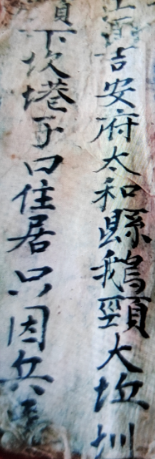 江西吉安府太和縣鵝頸大坵圳
下坎塆子口住居只因兵